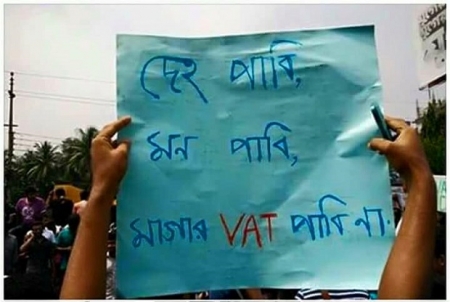 দেহ পাবি,
মন পাবি,
মাগার VAT পাবি না.